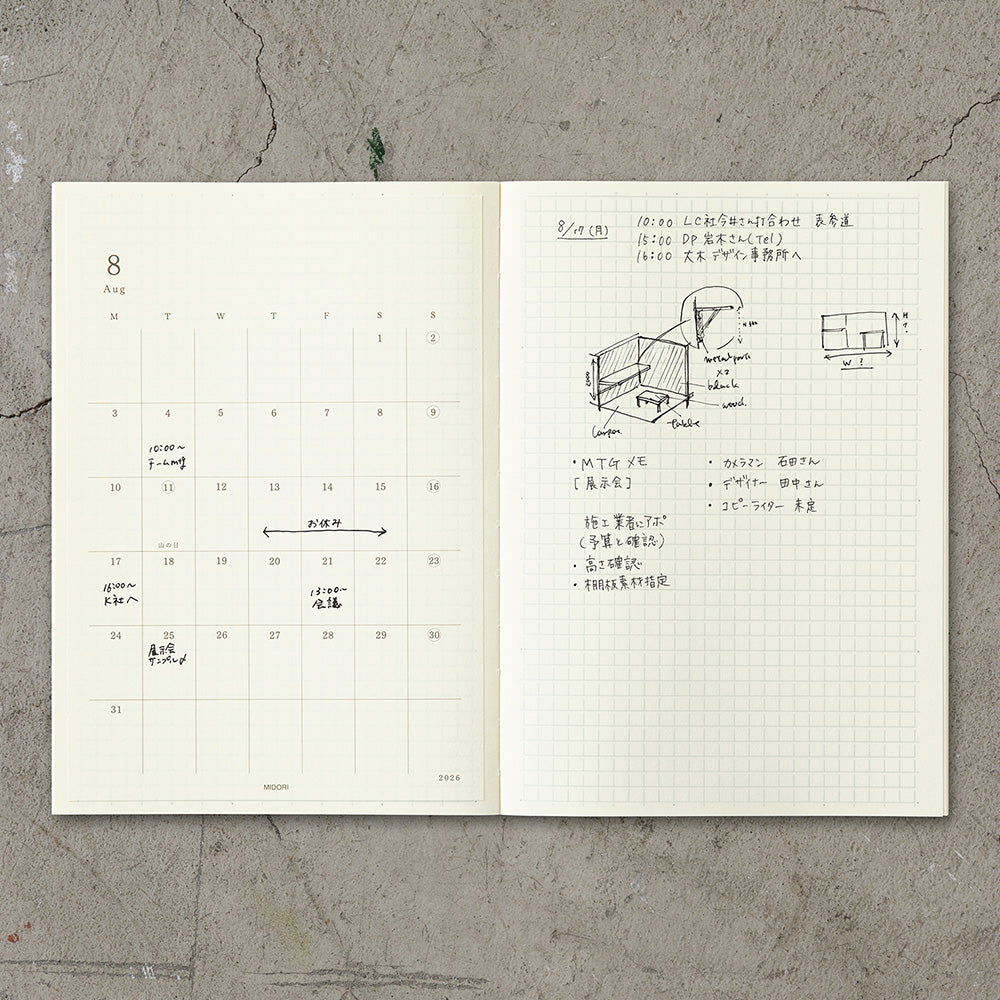 8
Aug
M T W T F S S
1 2
3 4 5 6 7 8 9
10:00〜
チームmtg
10 11 12 13 14 15 16
お休み
山の日
17 18 19 20 21 22 23
16:00〜
K社へ
13:00〜
会議
24 25 26 27 28 29 30
展示会
サンプル〆
31
2026
MIDORI
8/17 (月)
10:00 LC社今井さん打合わせ 表参道
15:00 DP 岩木さん(Tel)
16:00 大木 デザイン事務所へ
H
metal
×2
black
wood.
table
H
?
W ?
・MTG メモ
[展示会]
施工業者にアポ
(予算と確認)
・高さ確認
・棚板素材指定
・カメラマン 石田さん
・デザイナー 田中さん
・コピーライター 未定